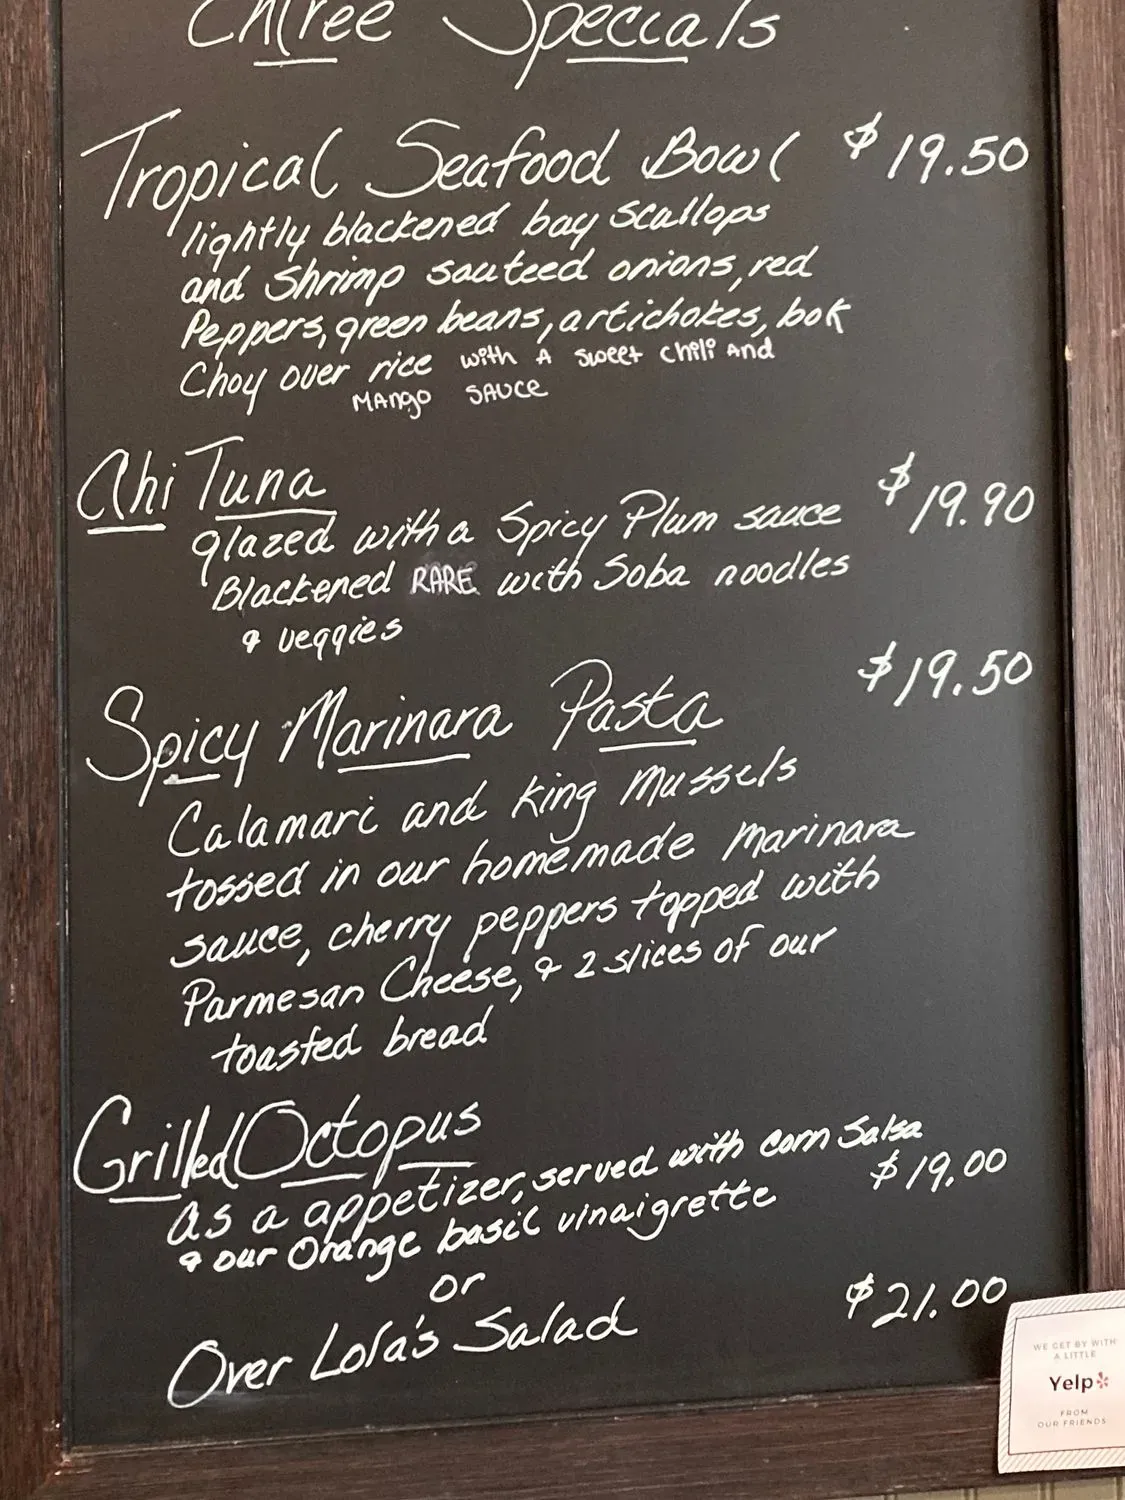 Entree Specials
Tropical Seafood Bowl $19.50
lightly blackened bay scallops
and Shrimp sauteed onions, red
Peppers, green beans, artichokes, bok
Choy over rice with A sweet chili And
MAngo SAUCe
Ahi Tuna
glazed with a Spicy Plum sauce $19.90
Blackened RARE with Soba noodles
& veggies
Spicy Marinara Pasta $19.50
Calamari and king Mussels
tossed in our homemade Marinara
sauce, cherry peppers topped with
Parmesan Cheese, & 2 slices of our
toasted bread
Grilled Octopus
as a appetizer, served with corn Salsa
& our Orange basil vinaigrette $19.00
or
Over Lola's Salad $21.00
WE GET BY WITH
A LITTLE
Yelp
FROM
OUR FRIENDS